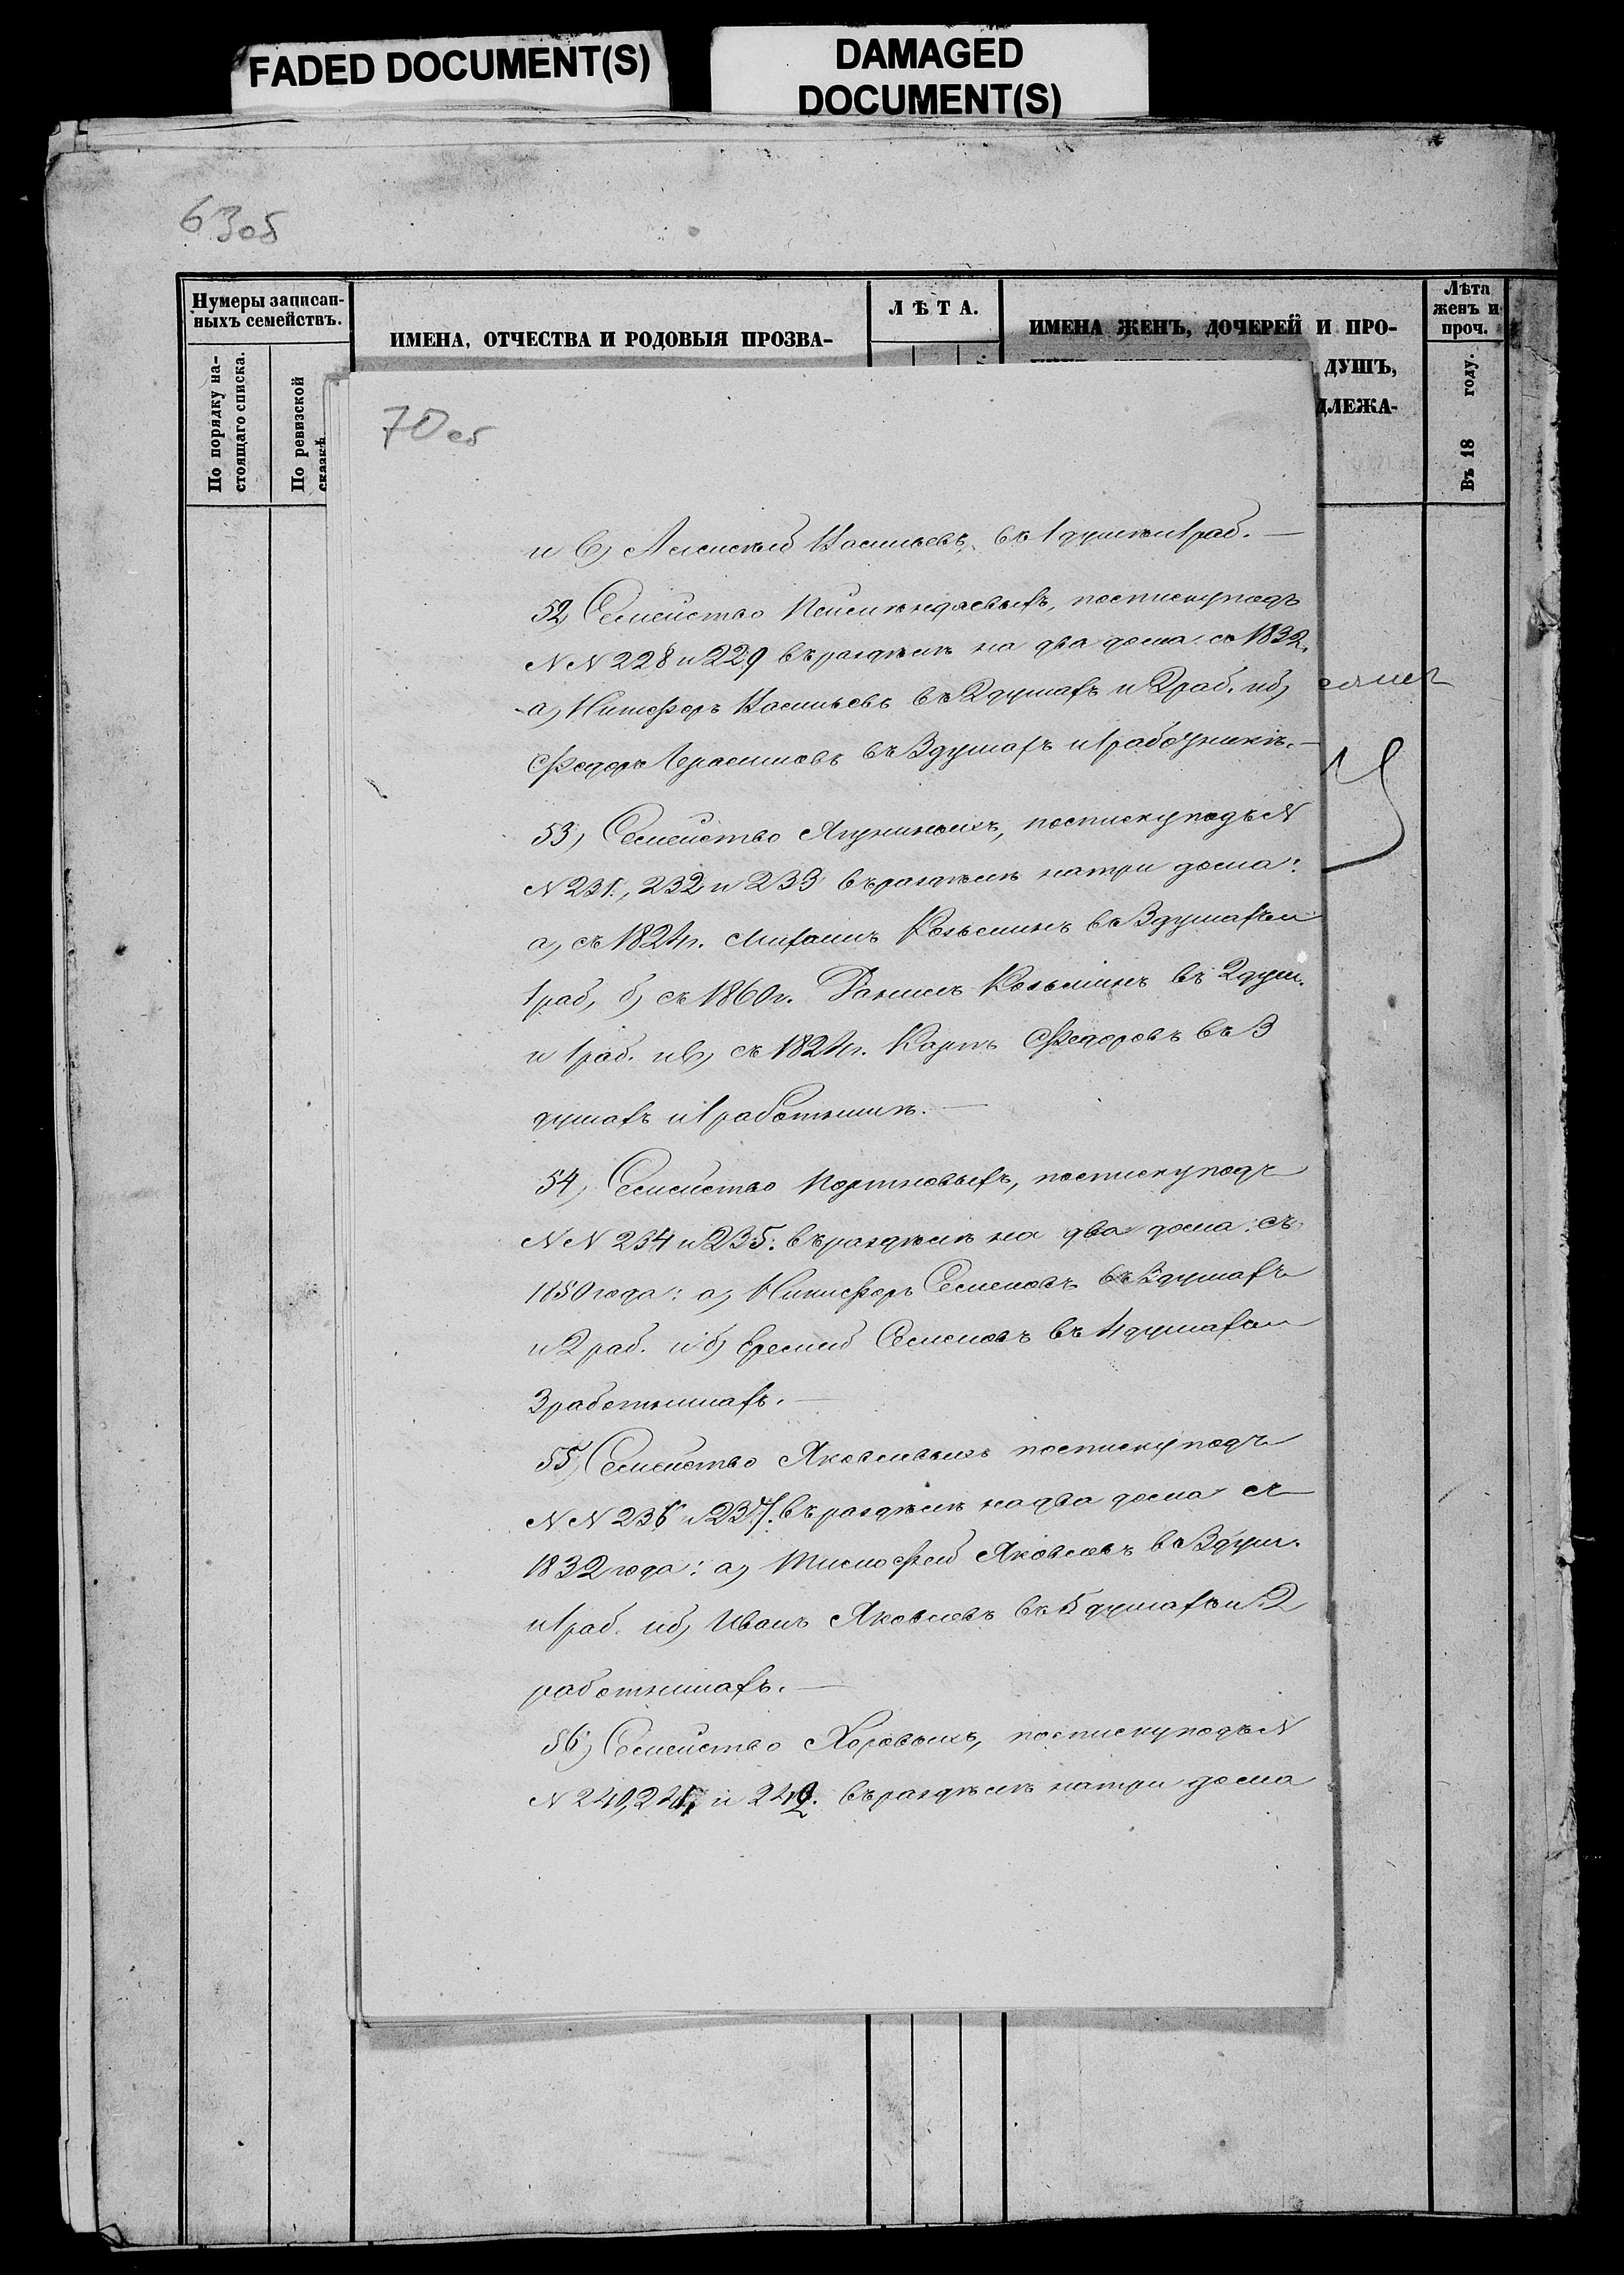 FADED DOCUMENT(S)
DAMAGED
DOCUMENT(S)
63об
Нумеры записан-
ныхъ семействъ.
По порядку на-
стоящаго списка.
По ревизской
сказкѣ
ИМЕНА, ОТЧЕСТВА И РОДОВЫЯ ПРОЗВА-
ЛѢТА.
ИМЕНА ЖЕНЪ, ДОЧЕРЕЙ И ПРО-
ДУШЪ,
ДЛЕЖА-
Лѣта
женъ и
проч.
Въ 18 году.
70об
и в) Алексѣй Васильевъ, въ 1 душѣ и 1 раб. —
52) Семейство по списку подъ
N N 228 и 229 въ раздѣлѣ на два дома съ 1832.
а) Никифоръ Васильевъ въ 2 душахъ и 2 раб. и б)
Федоръ Герасимовъ въ 3 душахъ и 1 работникѣ. —
53) Семейство по списку подъ N
N 231, 232 и 233 въ раздѣлѣ на три дома:
а, съ 1824 г. Козьминъ въ 3 душахъ и
1 раб, б, съ 1860 г. Данилъ Козьминъ въ 2 душ.
и 1 раб. и в, съ 1824 г. Карпъ Федоровъ въ 3
душахъ и 1 работникѣ. —
54, Семейство Портновыхъ, по списку подъ
N N 234 и 235. въ раздѣлѣ на два дома: съ
1850 года: а, Никифоръ Семеновъ въ 3 душахъ
и 2 раб. и б) Еремей Семеновъ въ 4 душахъ и
3 работникахъ. —
55, Семейство Яковлевыхъ по списку подъ
N N 236 и 237. въ раздѣлѣ на два дома съ
1832 года: а, Тимофей Яковлевъ въ 3 душ.
и 1 раб. и б, Иванъ Яковлевъ въ 5 душахъ и 2
работникахъ. —
56, Семейство по списку подъ N
N 240, 241, и 242. въ раздѣлѣ на три дома